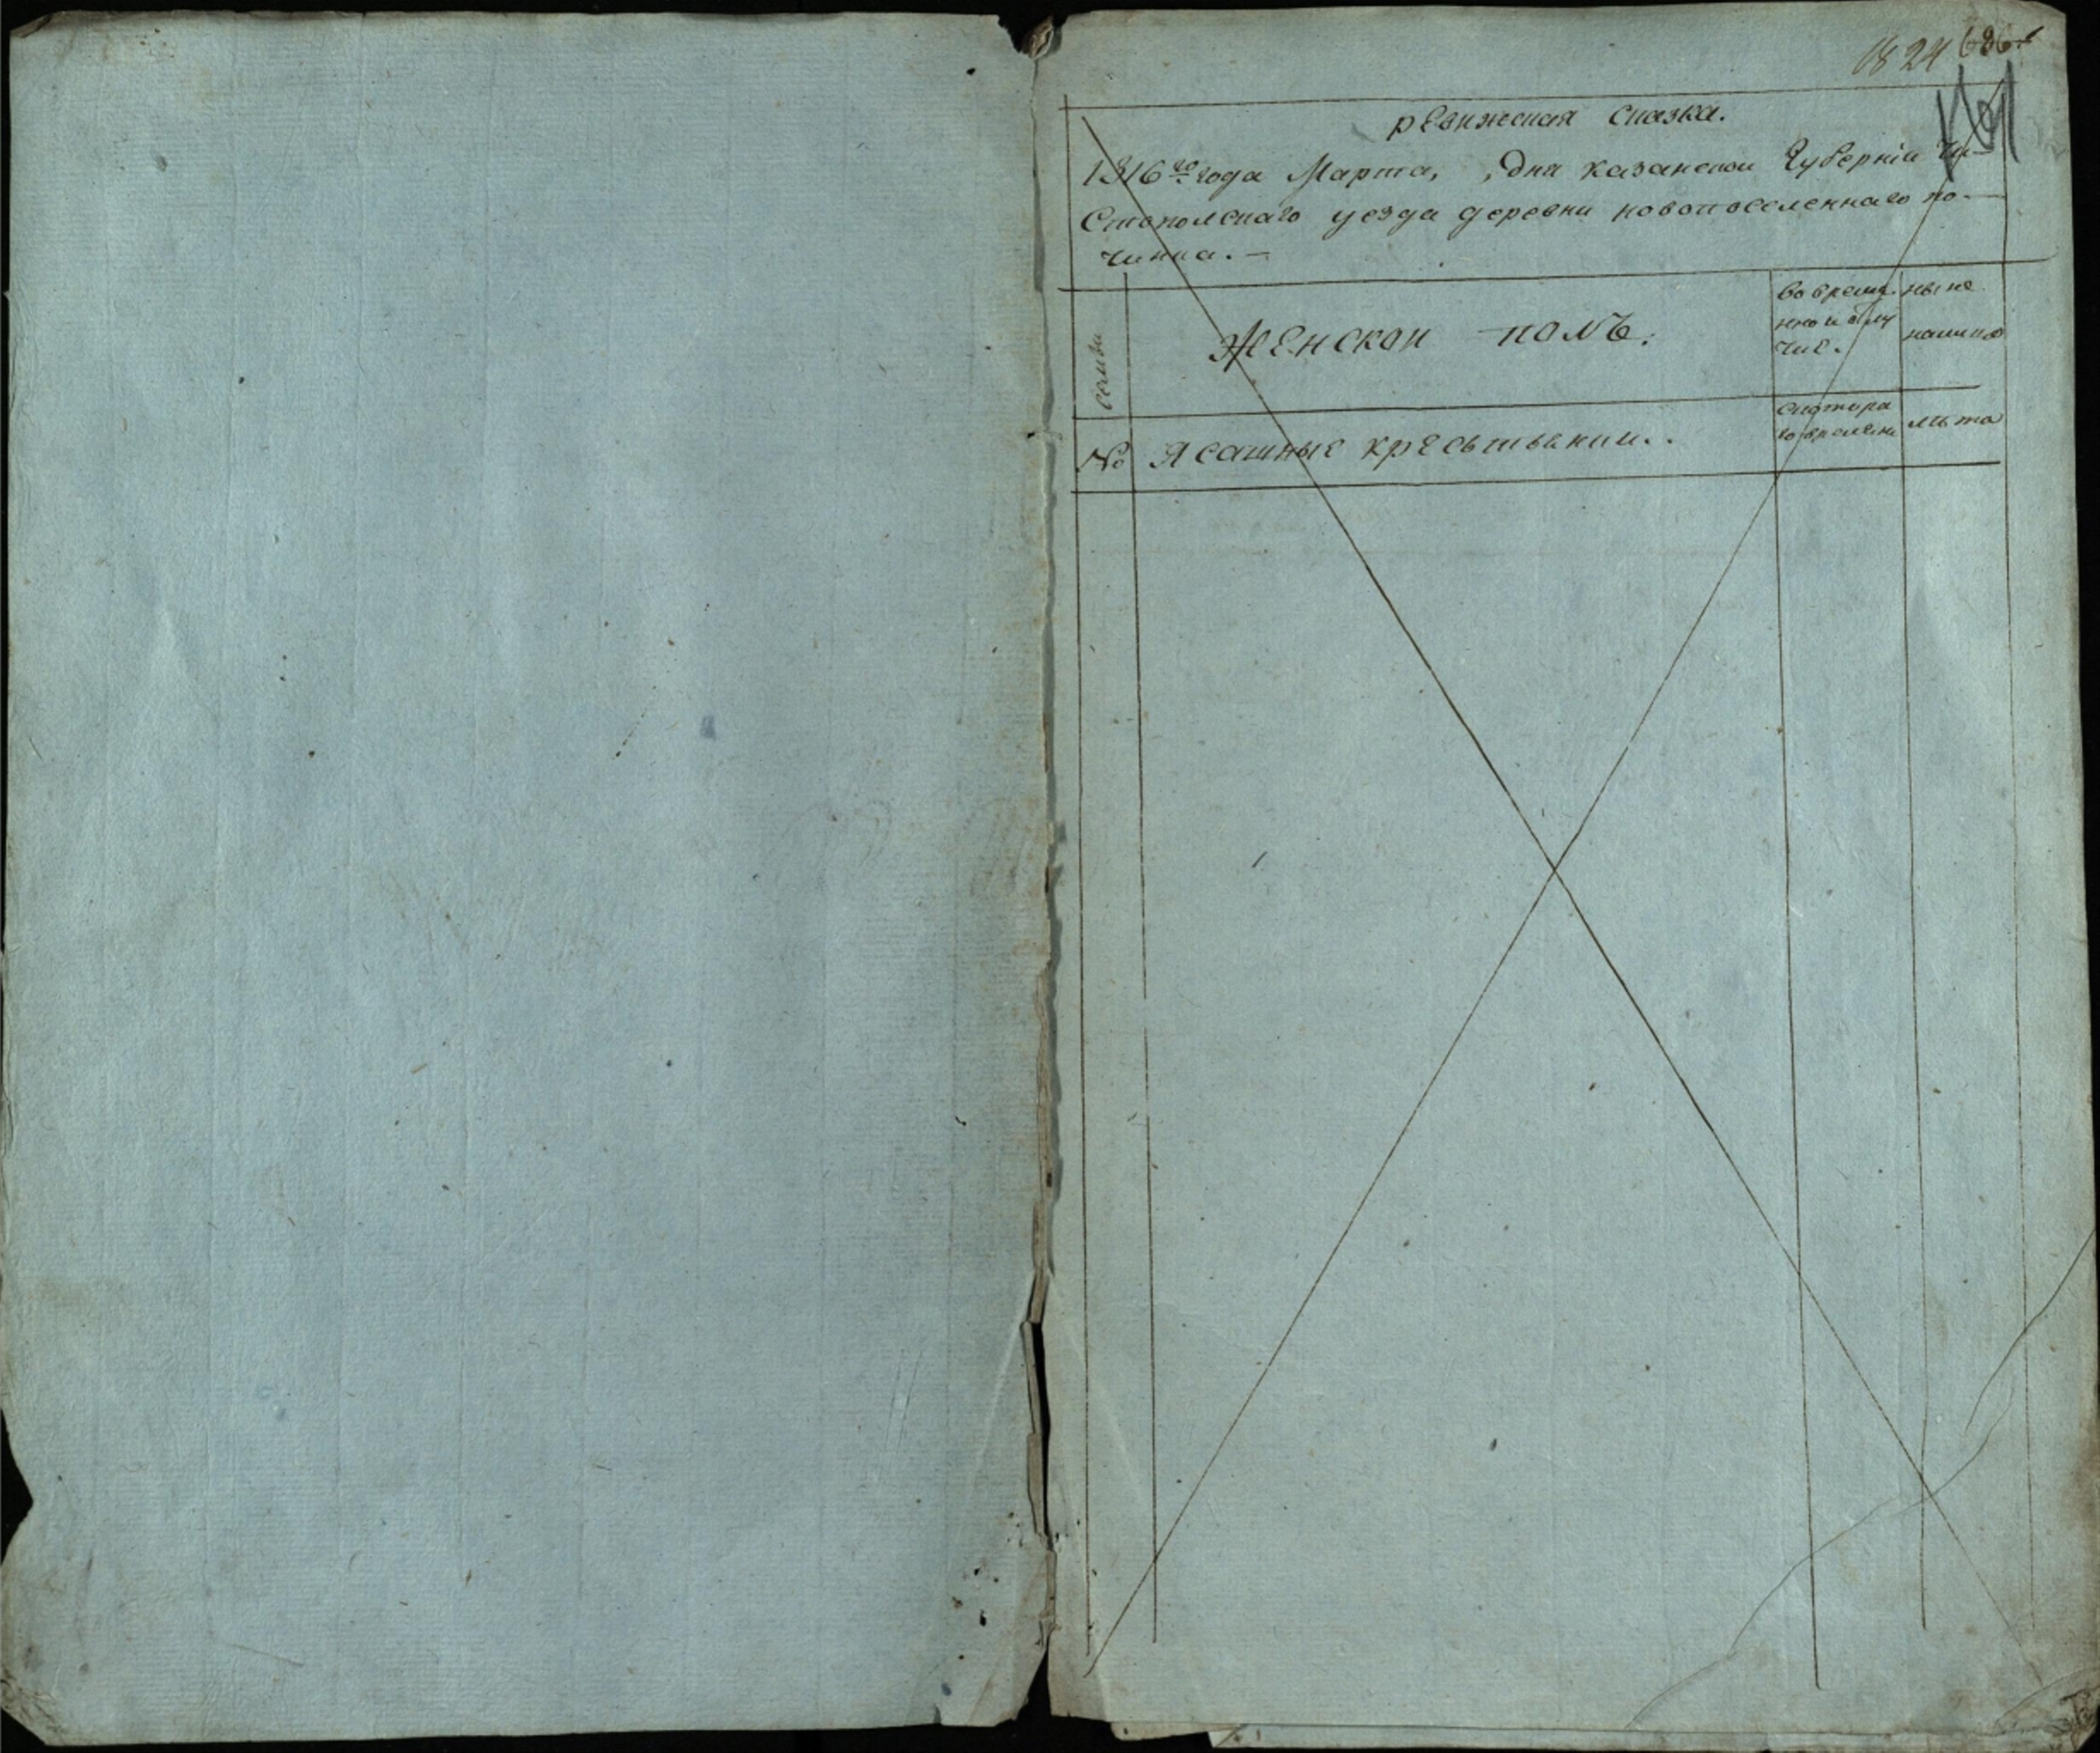 1824 686
ревижская сказка.
1816го года Марта, , дня казанской Губернiи Чи-
стополскаго уезда деревни новопоселеннаго по-
чинка. —
семьи
Женской полъ.
во време.
нной отлу
чке.
ныне
налицо
№
Ясашные кресьтьянии..
скотора
го времени
льта